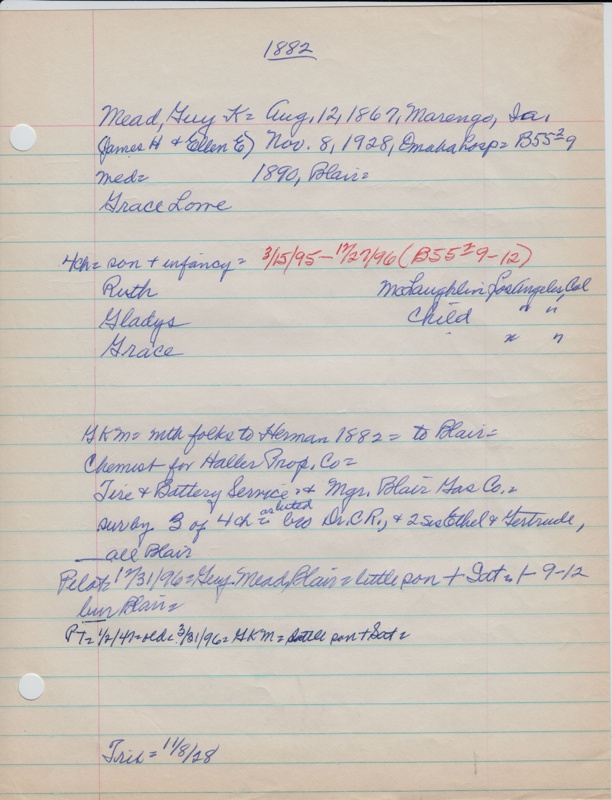 1882
Mead, Guy K= Aug. 12, 1867, Marengo, Ia.
(James H + Ellen E) Nov. 8, 1928, Omaha hosp= B55²9
med= 1890, Blair=
Grace Lowe
4ch= son + infancy= 3/15/95 - 12/27/96 (B55²9-12)
Ruth McLaughlin, Los Angeles, Cal
Gladys Child " "
Grace " "
GKM= with folks to Herman 1882= to Blair=
Chemist for Haller Prop. Co=
Tire & Battery Service & Mgr. Blair Gas Co.=
surby 3 of 4ch as listed bro Dr. C R., & 2 sis Ethel & Gertrude,
all Blair
Pilot= 12/31/96= Guy Mead, Blair= little son + Sat 9-12
bur Blair=
PT= 1/2/47= 3/31/96= GKM= little son + Sat=
Trib= 11/8/28